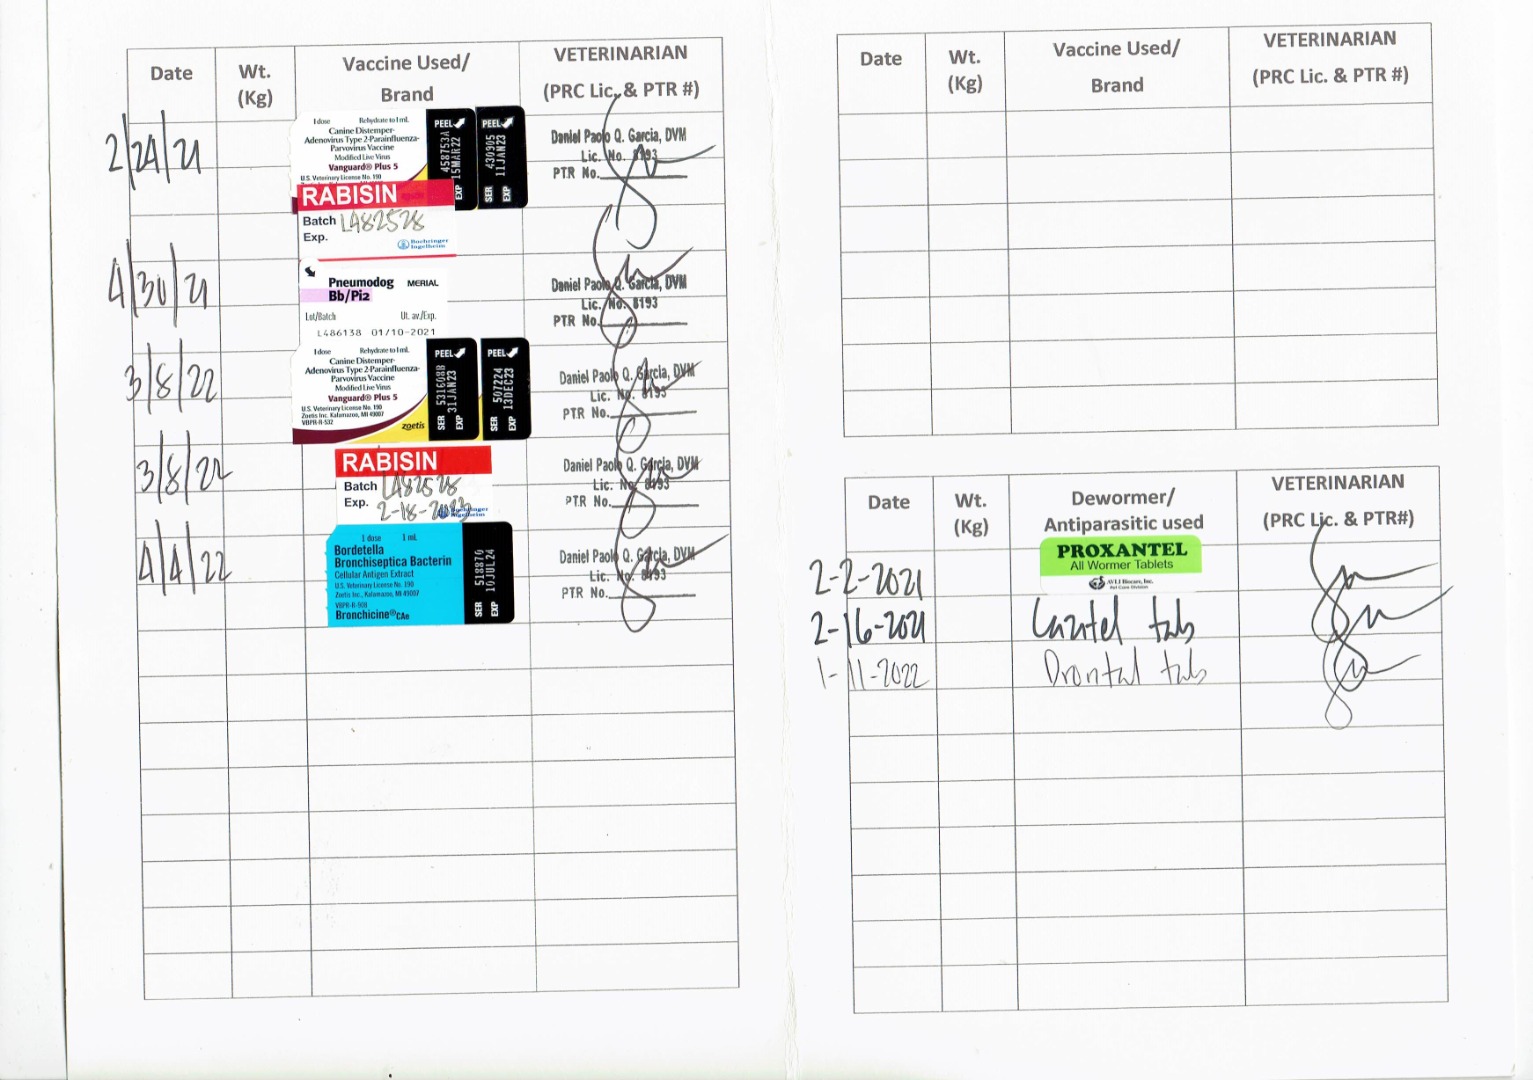 Date
Wt.
(Kg)
Vaccine Used/
Brand
VETERINARIAN
(PRC Lic. & PTR #)
2/24/21
1 dose Rehydrate to 1 mL
Canine Distemper-
Adenovirus Type 2-Parainfluenza-
Parvovirus Vaccine
Modified Live Virus
Vanguard® Plus 5
U.S. Veterinary License No. 190
PEEL
458753A
EXP 15MAR22
PEEL
SER 430905
EXP 11JAN23
RABISIN
Batch LA82528
Exp.
Boehringer
Ingelheim
Daniel Paolo Q. Garcia, DVM
Lic. No. 8193
PTR No.
4/30/21
Pneumodog MERIAL
Bb/Pi2
Lot/Batch Ut. av./Exp.
L486138 01/10-2021
Daniel Paolo Q. Garcia, DVM
Lic. No. 8193
PTR No.
3/8/22
1 dose Rehydrate to 1 mL
Canine Distemper-
Adenovirus Type 2-Parainfluenza-
Parvovirus Vaccine
Modified Live Virus
Vanguard® Plus 5
U.S. Veterinary License No. 190
Zoetis Inc. Kalamazoo, MI 49007
VBPR-R-532
zoetis
PEEL
SER 531608B
EXP 31JAN23
PEEL
SER 507224
EXP 13DEC23
Daniel Paolo Q. Garcia, DVM
Lic. No. 8193
PTR No.
3/8/22
RABISIN
Batch LA82528
Exp. 2-18-2023
Boehringer
Ingelheim
Daniel Paolo Q. Garcia, DVM
Lic. No. 8193
PTR No.
4/4/22
1 dose 1 mL
Bordetella
Bronchiseptica Bacterin
Cellular Antigen Extract
U.S. Veterinary License No. 190
Zoetis Inc., Kalamazoo, MI 49007
VBPR-R-908
Bronchicine®CAe
SER 518870
EXP 10JUL24
Daniel Paolo Q. Garcia, DVM
Lic. No. 8193
PTR No.
Date
Wt.
(Kg)
Vaccine Used/
Brand
VETERINARIAN
(PRC Lic. & PTR #)
Date
Wt.
(Kg)
Dewormer/
Antiparasitic used
VETERINARIAN
(PRC Lic. & PTR#)
2-2-2021
PROXANTEL
All Wormer Tablets
AVLI Biocare, Inc.
Pet Care Division
2-16-2021
tab
1-11-2022
Drontal tab